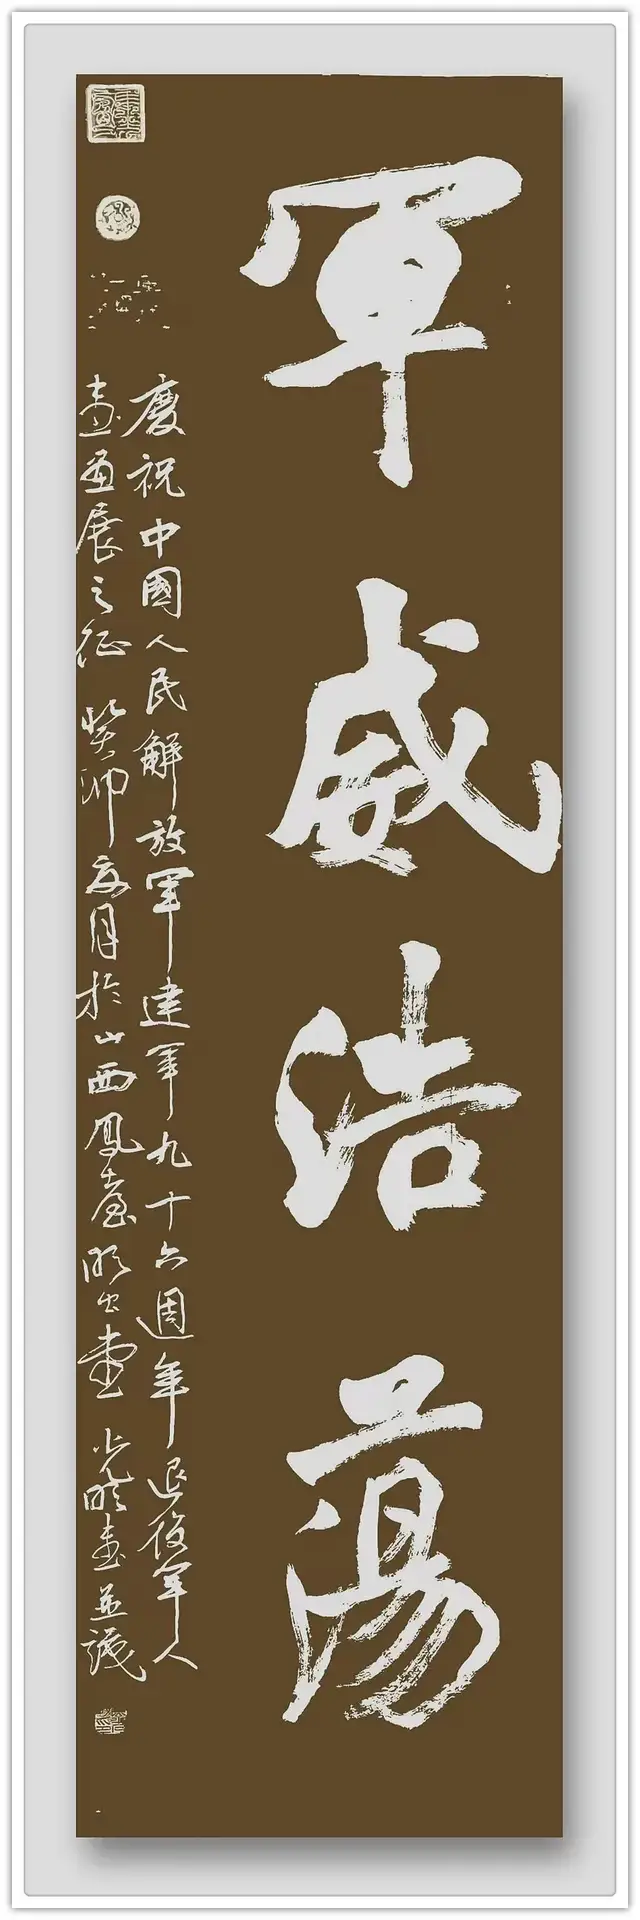 軍威浩蕩
慶祝中國人民解放軍建軍九十六週年退役軍人
書畫展之征 癸卯夏月於山西鳳臺明出堂 光明書並識